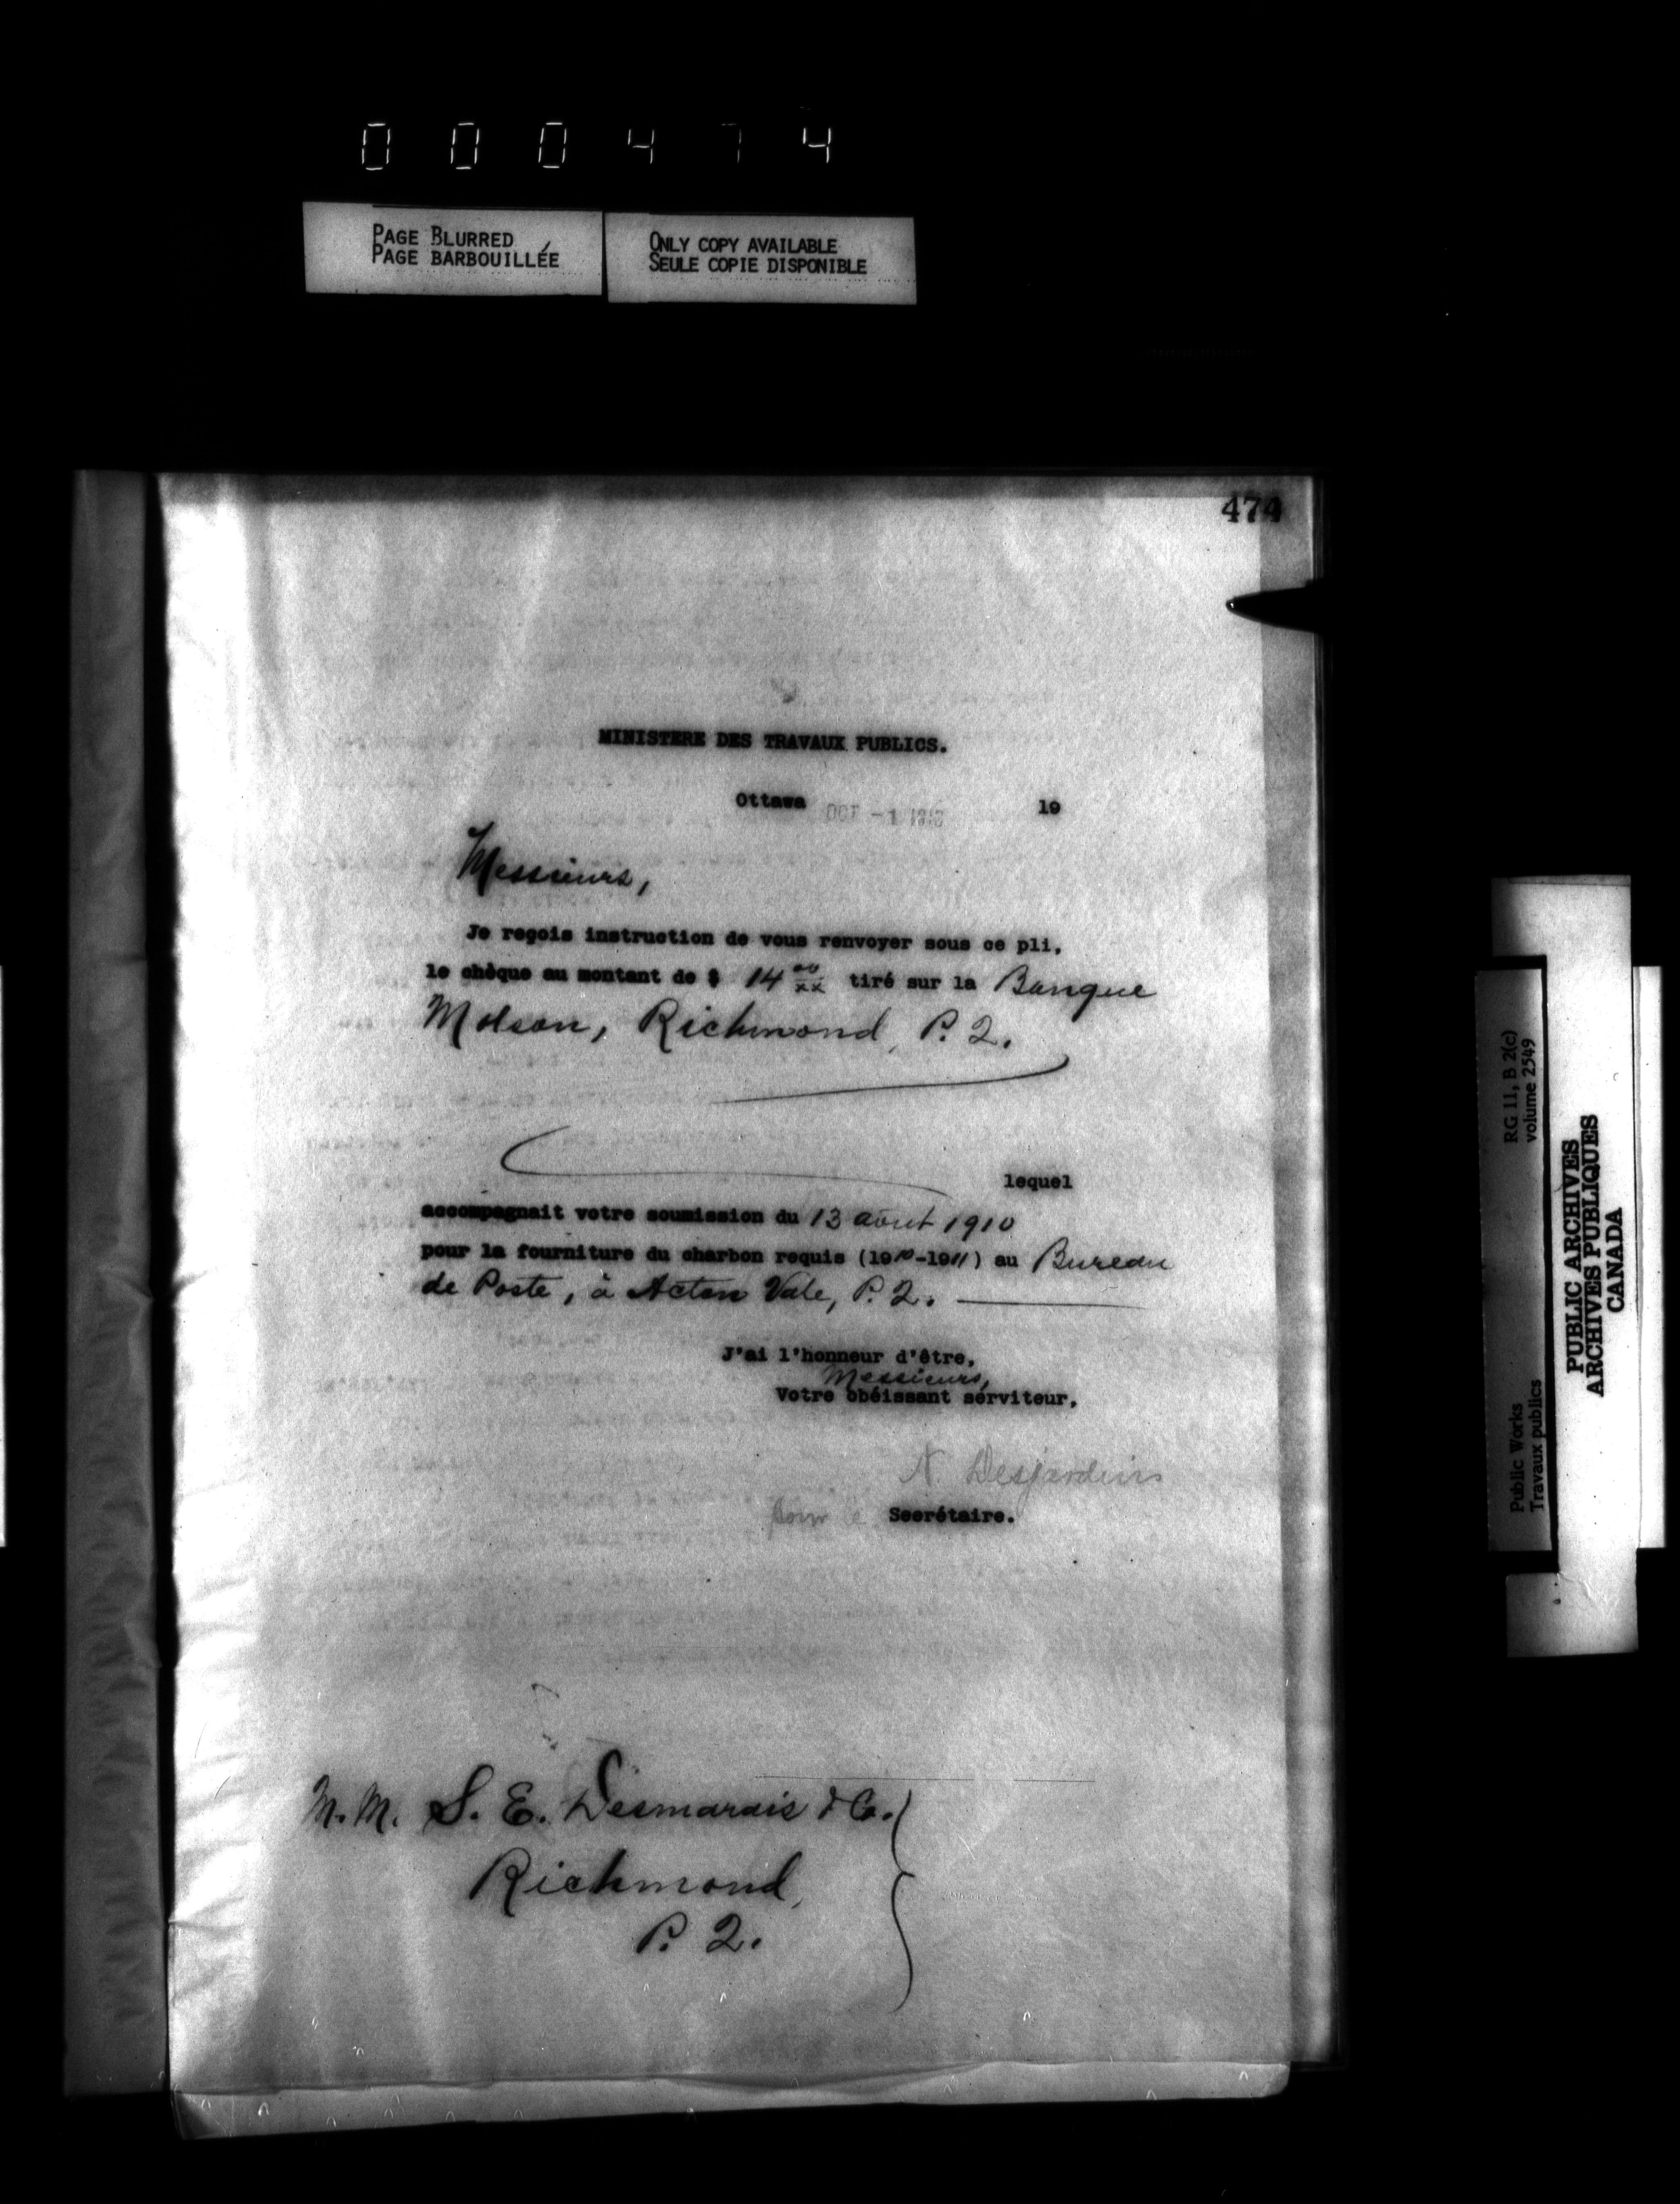 000474
PAGE BLURRED
PAGE BARBOUILLÉE
ONLY COPY AVAILABLE
SEULE COPIE DISPONIBLE
474
MINISTERE DES TRAVAUX PUBLICS.
Ottawa OCT -1 19
Messieurs,
Je reçois instruction de vous renvoyer sous ce pli,
le chèque au montant de $ 14 00/xx tiré sur la Banque
Molson, Richmond, P. Q.
lequel
accompagnait votre soumission du 13 août 1910
pour la fourniture du charbon requis (1910-1911) au Bureau
de Poste, à Acton Vale, P. Q.
J'ai l'honneur d'être,
Messieurs,
Votre obéissant serviteur,
N. Desjardins
pour le Secrétaire.
M.M. S. E. Desmarais & Co.
Richmond,
P. Q.
RG 11, B 2(c)
volume 2549
Public Works
Travaux publics
PUBLIC ARCHIVES
ARCHIVES PUBLIQUES
CANADA